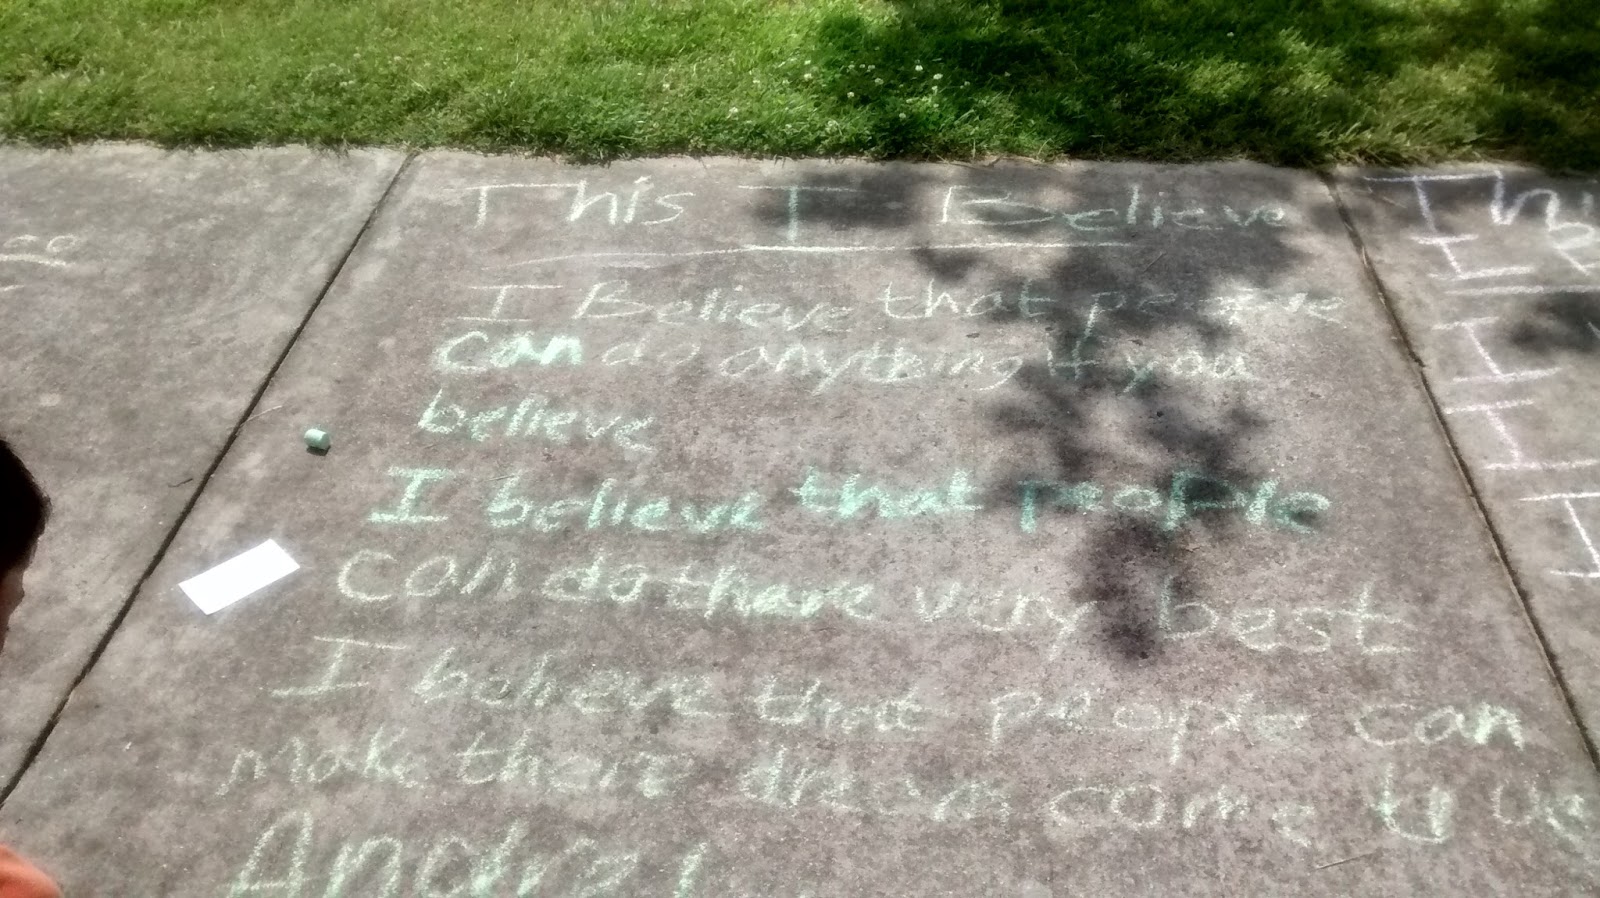 This I Believe
I Believe that people
can do anything if you
believe
I believe that people
can do there very best
I believe that people can
make their dreams come true